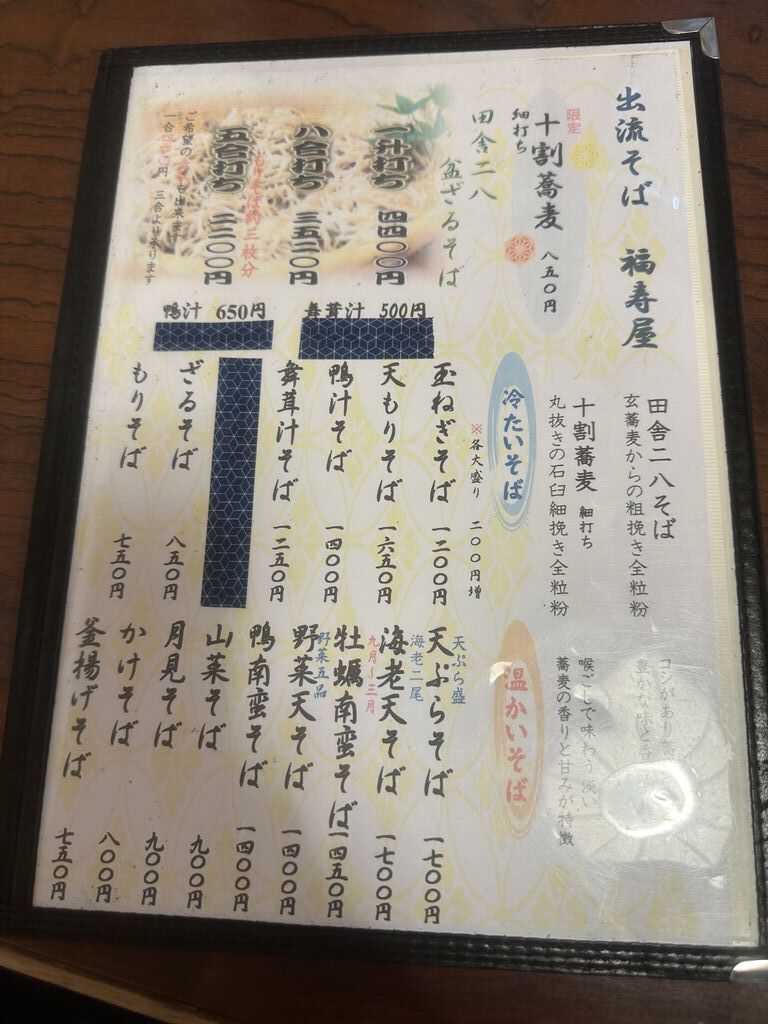 出流そば 福寿屋
田舎二八そば
玄蕎麦からの粗挽き全粒粉
コシがあり
豊かな味と香
十割蕎麦 細打ち
丸抜きの石臼細挽き全粒粉
喉ごしで味わう淡い
蕎麦の香りと甘みが特徴
限定
十割蕎麦 八五〇円
細打ち
田舎二八
盆ざるそば
一升打ち 四四〇〇円
八合打ち 三五二〇円
もりそば約三枚分
五合打ち 二二〇〇円
ご希望の
も出来ます
一合四四〇円 三合より承ります
舞茸汁 500円
鴨汁 650円
冷たいそば
※各大盛り 二〇〇円増
玉ねぎそば 一二〇〇円
天もりそば 一六五〇円
鴨汁そば 一四〇〇円
舞茸汁そば 一二五〇円
ざるそば 八五〇円
もりそば 七五〇円
温かいそば
天ぷら盛
天ぷらそば 一七〇〇円
海老二尾
海老天そば 一七〇〇円
九月〜三月
牡蠣南蛮そば 一四五〇円
野菜五品
野菜天そば 一四〇〇円
鴨南蛮そば 一四〇〇円
山菜そば 九〇〇円
月見そば 九〇〇円
かけそば 八〇〇円
釜揚げそば 七五〇円